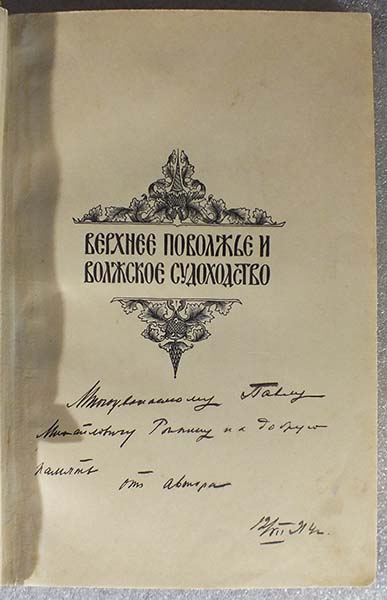 ВЕРХНЕЕ ПОВОЛЖЬЕ И
ВОЛЖСКОЕ СУДОХОДСТВО
Многоуважаемому Павлу
Михайловичу на добрую
память
от автора